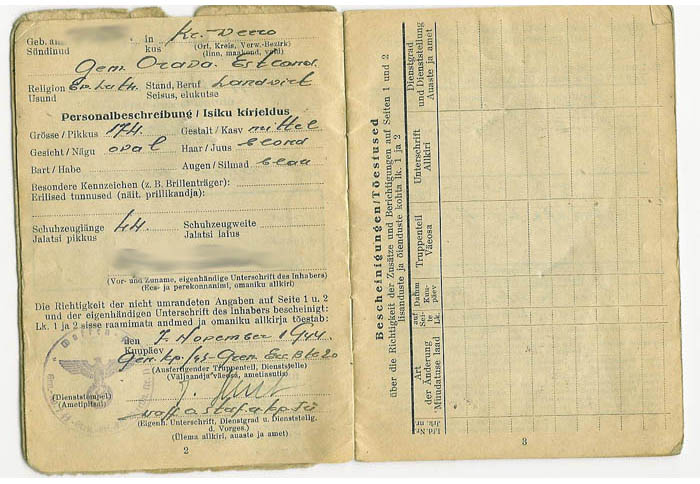 Geb. am in Kr. Werro
Sündinud kus (Ort, Kreis, Verw.-Bezirk)
(linn, maakond, vald)
Gem. Orava. Estland.
Religion Ev. Luth. Stand, Beruf Landwirt
Usund Seisus, elukutse
Personalbeschreibung / Isiku kirjeldus
Grösse / Pikkus 174. Gestalt / Kasv mittel
Gesicht / Nägu oval Haar / Juus blond
Bart / Habe Augen / Silmad blau
Besondere Kennzeichen (z. B. Brillenträger):
Erilised tunnused (näit. prillikandja):
Schuhzeuglänge 44 Schuhzeugweite
Jalatsi pikkus Jalatsi laius
(Vor- und Zuname, eigenhändige Unterschrift des Inhabers)
(Ees- ja perekonnanimi, omaniku allkiri)
Die Richtigkeit der nicht umrandeten Angaben auf Seite 1 u. 2
und der eigenhändigen Unterschrift des Inhabers bescheinigt:
Lk. 1 ja 2 sisse raamimata andmed ja omaniku allkirja tõestab:
den 7. November 1944
Kuupäev
(Ausfertigender Truppenteil, Dienststelle)
(Väljaandja väeosa, ametiasutis)
(Dienststempel)
(Ametipitsat)
(Eigenh. Unterschrift, Dienstgrad u. Dienststellg.
d. Vorges.)
(Ülema allkiri, auaste ja amet)
2
Bescheinigungen / Tõestused
über die Richtigkeit der Zusätze und Berichtigungen auf Seiten 1 und 2
lisanduste ja õienduste kohta lk. 1 ja 2
Lfd. Nr.
Jrk. nr.
Art
der Änderung
Muudatuse laad
auf
Sei-
te
Lk.
Datum
Kuu-
päev
Truppenteil
Väeosa
Unterschrift
Allkiri
Dienstgrad
und Dienststellung
Auaste ja amet
3